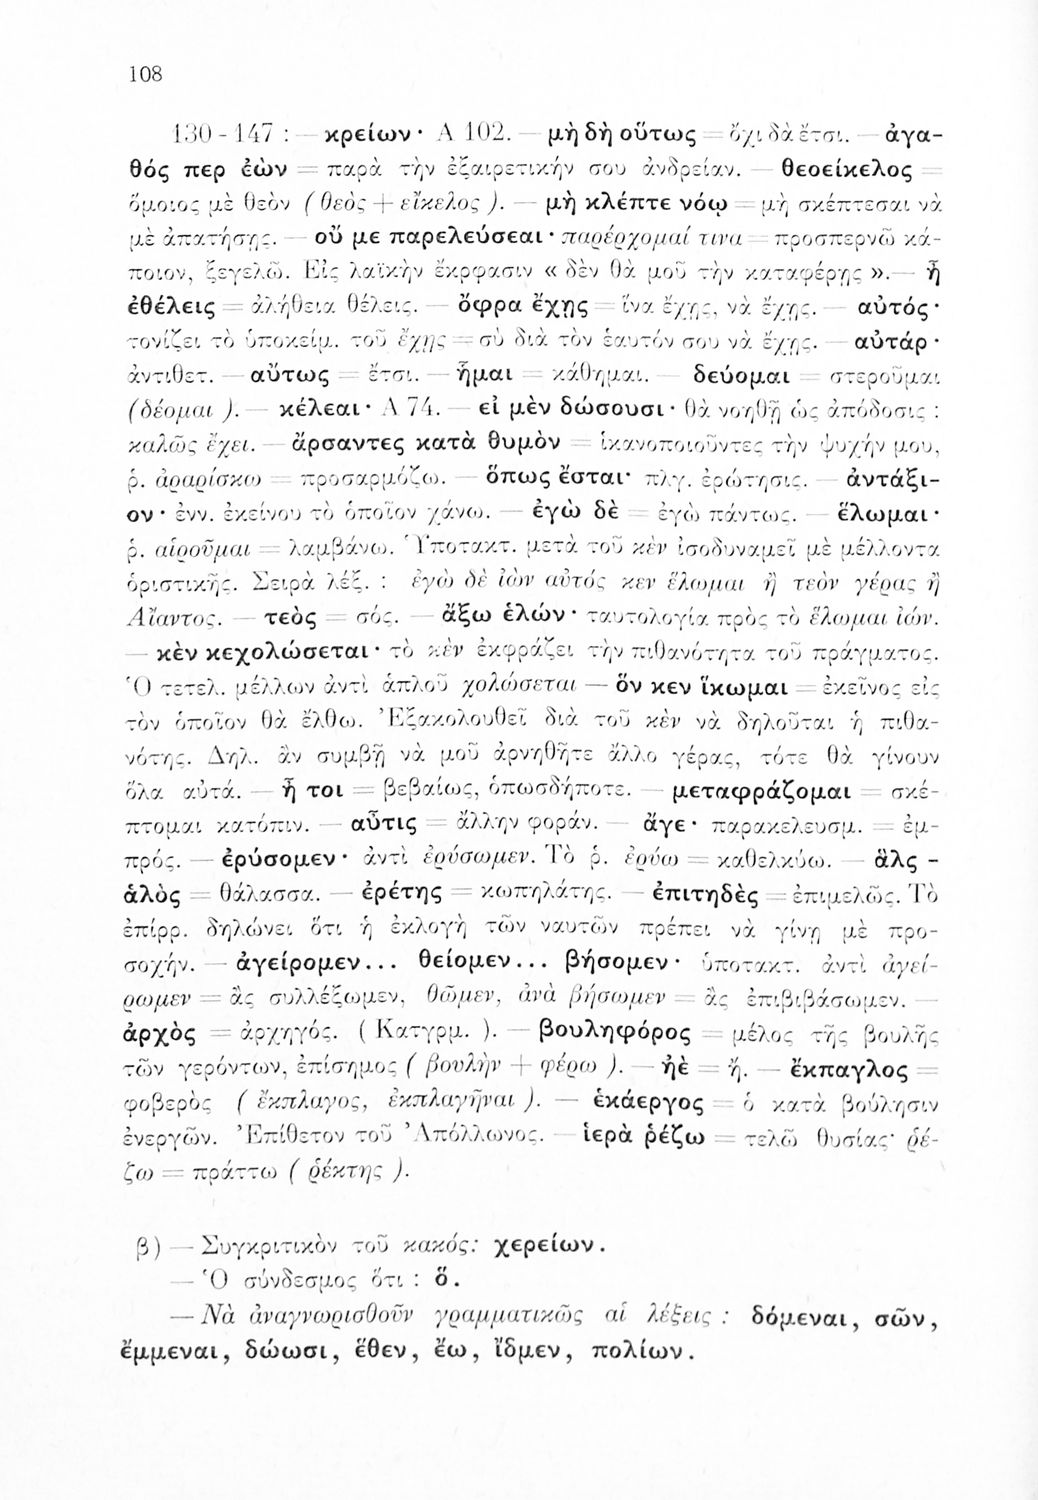 108
130 - 147 : — κρείων · Α 102. — μὴ δὴ οὕτως = ὄχι δὰ ἔτσι. — ἀγα-
θός περ ἐὼν = παρὰ τὴν ἐξαιρετικήν σου ἀνδρείαν. — θεοείκελος =
ὅμοιος μὲ θεὸν ( θεὸς + εἴκελος ). — μὴ κλέπτε νόῳ = μὴ σκέπτεσαι νὰ
μὲ ἀπατήσῃς. — οὔ με παρελεύσεαι · παρέρχομαί τινα = προσπερνῶ κά-
ποιον, ξεγελῶ. Εἰς λαϊκὴν ἔκρφασιν « δὲν θὰ μοῦ τὴν καταφέρῃς ».— ἦ
ἐθέλεις = ἀλήθεια θέλεις. — ὄφρα ἔχῃς = ἵνα ἔχῃς, νὰ ἔχῃς. — αὐτός ·
τονίζει τὸ ὑποκείμ. τοῦ ἔχῃς = σὺ διὰ τὸν ἑαυτόν σου νὰ ἔχῃς. — αὐτάρ ·
ἀντιθετ. — αὔτως = ἔτσι. — ἧμαι = κάθημαι. — δεύομαι = στεροῦμαι
(δέομαι ). — κέλεαι · Α 74. — εἰ μὲν δώσουσι · θὰ νοηθῇ ὡς ἀπόδοσις :
καλῶς ἔχει. — ἄρσαντες κατὰ θυμὸν = ἱκανοποιοῦντες τὴν ψυχήν μου,
ῥ. ἀραρίσκω = προσαρμόζω. — ὅπως ἔσται· πλγ. ἐρώτησις. — ἀντάξι-
ον · ἐνν. ἐκείνου τὸ ὁποῖον χάνω. — ἐγὼ δὲ = ἐγὼ πάντως. — ἕλωμαι ·
ῥ. αἱροῦμαι = λαμβάνω. Ὑποτακτ. μετὰ τοῦ κὲν ἰσοδυναμεῖ μὲ μέλλοντα
ὁριστικῆς. Σειρὰ λέξ. : ἐγὼ δὲ ἰὼν αὐτός κεν ἕλωμαι ἢ τεὸν γέρας ἢ
Αἴαντος. — τεὸς = σός. — ἄξω ἑλών · ταυτολογία πρὸς τὸ ἕλωμαι ἰών.
— κὲν κεχολώσεται · τὸ κὲν ἐκφράζει τὴν πιθανότητα τοῦ πράγματος.
Ὁ τετελ. μέλλων ἀντὶ ἁπλοῦ χολώσεται — ὅν κεν ἵκωμαι = ἐκεῖνος εἰς
τὸν ὁποῖον θὰ ἔλθω. Ἐξακολουθεῖ διὰ τοῦ κὲν νὰ δηλοῦται ἡ πιθα-
νότης. Δηλ. ἂν συμβῇ νὰ μοῦ ἀρνηθῆτε ἄλλο γέρας, τότε θὰ γίνουν
ὅλα αὐτά. — ἦ τοι = βεβαίως, ὁπωσδήποτε. — μεταφράζομαι = σκέ-
πτομαι κατόπιν. — αὖτις = ἄλλην φοράν. — ἄγε · παρακελευσμ. = ἐμ-
πρός. — ἐρύσομεν · ἀντὶ ἐρύσωμεν. Τὸ ῥ. ἐρύω = καθελκύω. — ἅλς -
ἁλὸς = θάλασσα. — ἐρέτης = κωπηλάτης. — ἐπιτηδὲς = ἐπιμελῶς. Τὸ
ἐπίρρ. δηλώνει ὅτι ἡ ἐκλογὴ τῶν ναυτῶν πρέπει νὰ γίνῃ μὲ προ-
σοχήν. — ἀγείρομεν... θείομεν... βήσομεν · ὑποτακτ. ἀντὶ ἀγεί-
ρωμεν = ἂς συλλέξωμεν, θῶμεν, ἀνὰ βήσωμεν = ἂς ἐπιβιβάσωμεν. —
ἀρχὸς = ἀρχηγός. ( Κατγρμ. ). — βουληφόρος = μέλος τῆς βουλῆς
τῶν γερόντων, ἐπίσημος ( βουλὴν + φέρω ). — ἠὲ = ἤ. — ἔκπαγλος =
φοβερὸς ( ἔκπλαγος, ἐκπλαγῆναι ). — ἑκάεργος = ὁ κατὰ βούλησιν
ἐνεργῶν. Ἐπίθετον τοῦ Ἀπόλλωνος. — ἱερὰ ῥέζω = τελῶ θυσίας· ῥέ-
ζω = πράττω ( ῥέκτης ).
β) — Συγκριτικὸν τοῦ κακός: χερείων.
— Ὁ σύνδεσμος ὅτι : ὅ.
— Νὰ ἀναγνωρισθοῦν γραμματικῶς αἱ λέξεις : δόμεναι, σῶν,
ἔμμεναι, δώωσι, ἕθεν, ἔω, ἴδμεν, πολίων.